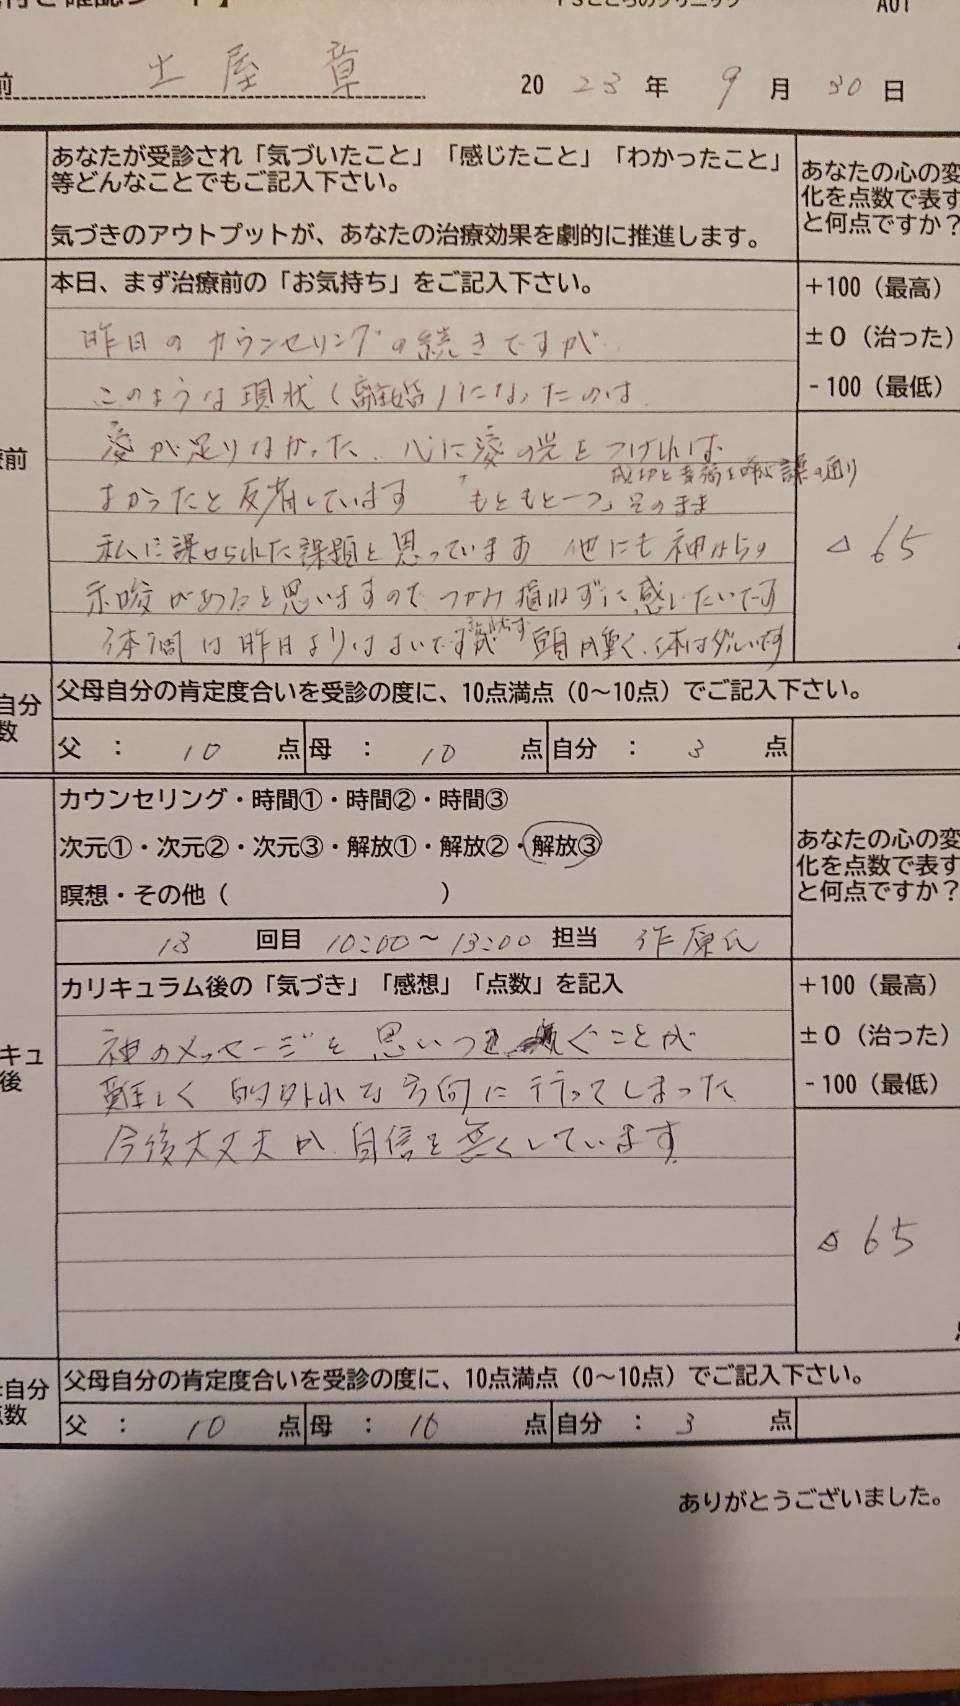 YSこころのクリニック
A01
前 土屋 章 2023年9月30日
あなたが受診され「気づいたこと」「感じたこと」「わかったこと」
等どんなことでもご記入下さい。
気づきのアウトプットが、あなたの治療効果を劇的に推進します。
あなたの心の変
化を点数で表す
と何点ですか?
本日、まず治療前の「お気持ち」をご記入下さい。
+100(最高)
±0(治った)
-100(最低)
昨日のカウンセリングの続きですが
このような現状(離婚)になったのは
愛が足りなかった、心に愛の光をつければ
成功と幸福を呼ぶ 課の通り
よかったと反省しています 「もともと一つ」そのまま
私に課せられた課題と思っています 他にも神からの
示唆があると思いますので つかみ損ねずに感じたいです
体調は昨日よりはよいですが 頭が重く、体はダルいです
前
△65
自分
数
父母自分の肯定度合いを受診の度に、10点満点(0~10点)でご記入下さい。
父 : 10 点 母 : 10 点 自分 : 3 点
カウンセリング・時間①・時間②・時間③
次元①・次元②・次元③・解放①・解放②・解放③
瞑想・その他( )
あなたの心の変
化を点数で表す
と何点ですか?
13 回目 10:00~13:00 担当 作原氏
カリキュラム後の「気づき」「感想」「点数」を記入
+100(最高)
±0(治った)
-100(最低)
キュ
後
神のメッセージを思いつきぐことが
難しく 的外れな方向に行ってしまった
今後大丈夫か 自信を無くしています
△65
自分
点数
父母自分の肯定度合いを受診の度に、10点満点(0~10点)でご記入下さい。
父 : 10 点 母 : 10 点 自分 : 3 点
ありがとうございました。